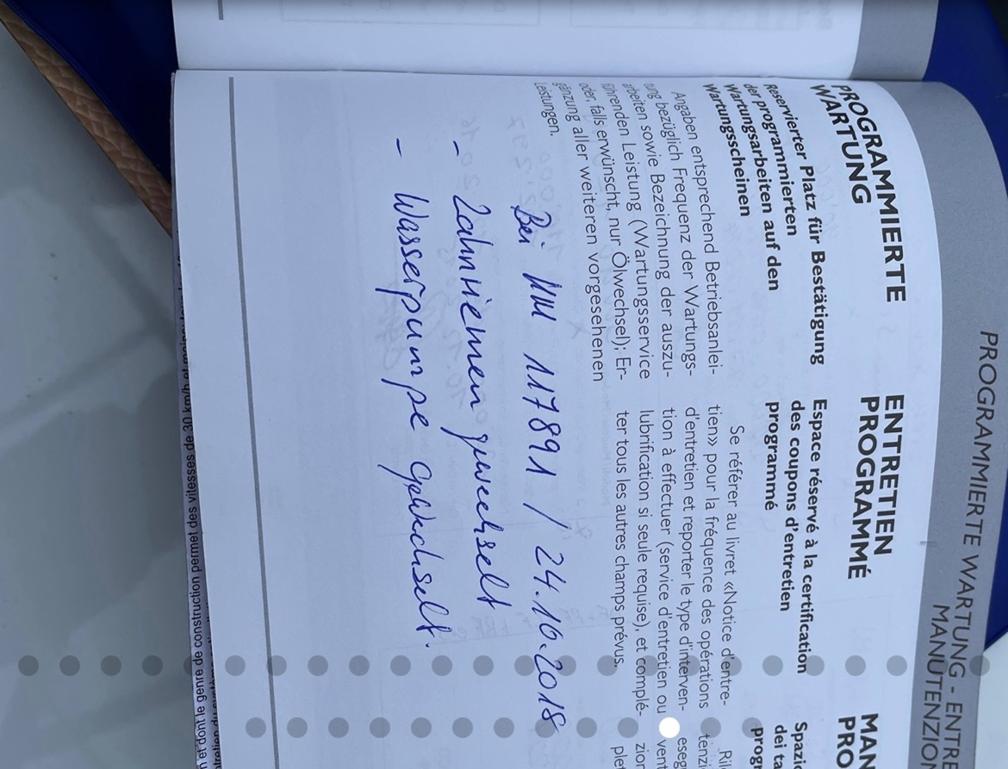 PROGRAMMIERTE WARTUNG - ENTRE
MANUTENZION
PROGRAMMIERTE
WARTUNG
Reservierter Platz für Bestätigung
der programmierten
Wartungsarbeiten auf den
Wartungsscheinen
Angaben entsprechend Betriebsanlei-
ung bezüglich Frequenz der Wartungs-
rbeiten sowie Bezeichnung der auszu-
ührenden Leistung (Wartungsservice
oder, falls erwünscht, nur Ölwechsel); Er-
gänzung aller weiteren vorgesehenen
Leistungen.
ENTRETIEN
PROGRAMMÉ
Espace réservé à la certification
des coupons d'entretien
programmé
Se référer au livret «Notice d'entre-
tien» pour la fréquence des opérations
d'entretien et reporter le type d'interven-
tion à effectuer (service d'entretien ou
lubrification si seule requise), et complé-
ter tous les autres champs prévus.
MAN
PRO
Spazio
dei ta
progr
Ril
tenzi
eseg
vent
zion
plet
Bei KM 117891 / 24.10.2018
- Zahnriemen gewechselt
- Wasserpumpe gewechselt.
et dont le genre de construction permet des vitesses de 30 km/h